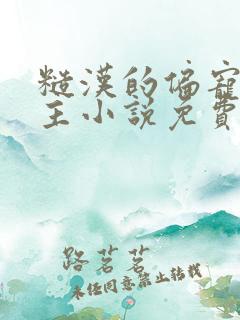 糙漢的偏寵
主小説免費
路茗茗
未经同意禁止转载